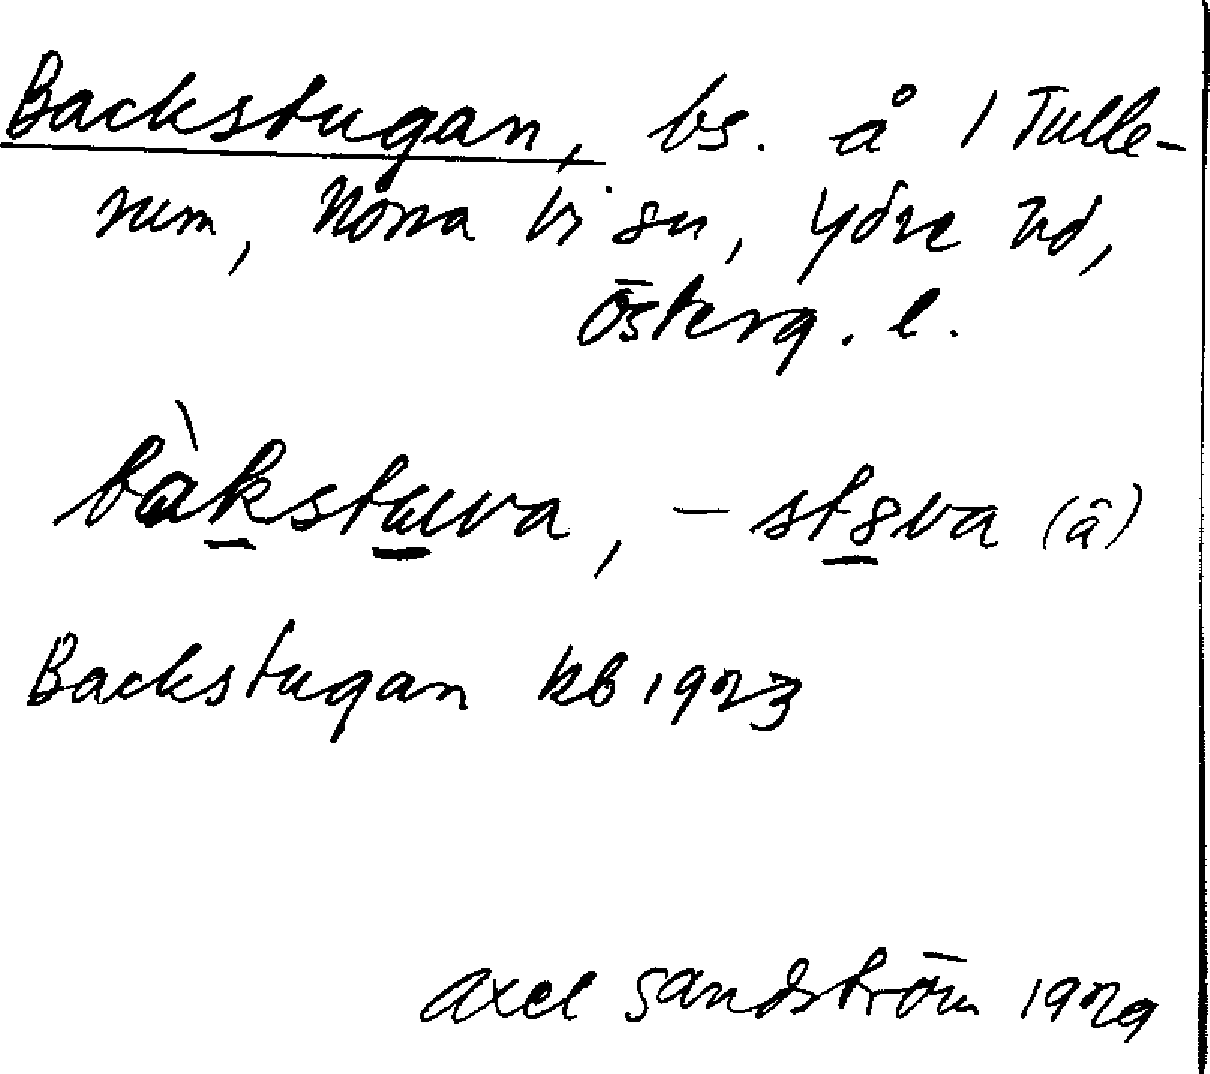 Backstugan, bs. å 1 Tulle-
rum, Norra Vi sn, Ydre hd,
Österg. l.
bàkstuva, -stɵva (â)
Backstugan kb 1923
Axel Sandström 1929